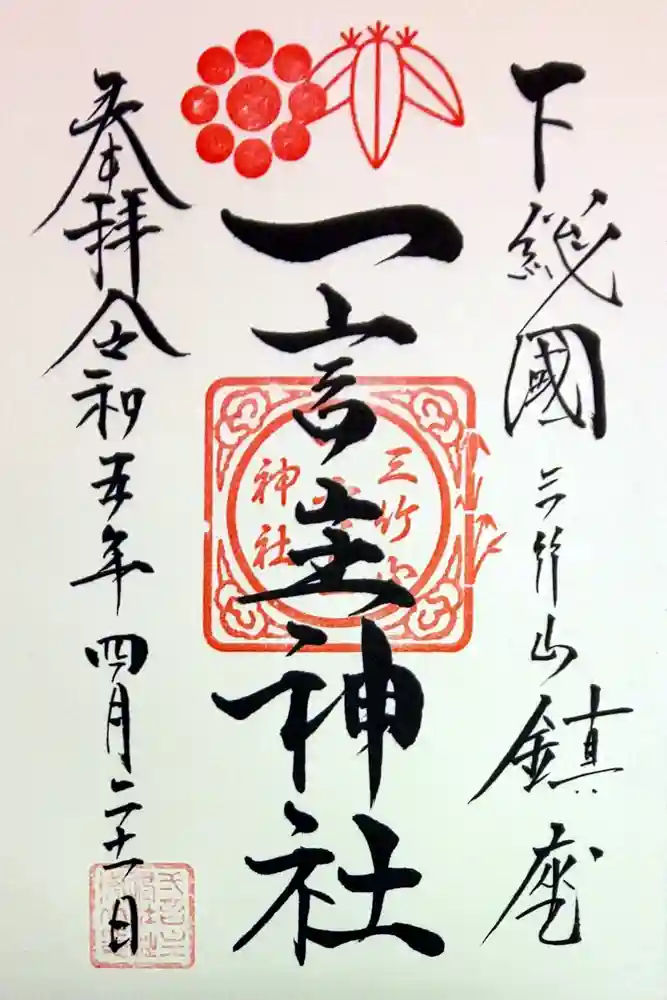 下総國三竹山鎮座
一言主神社
奉拝令和五年四月二十一日
三竹山
神社